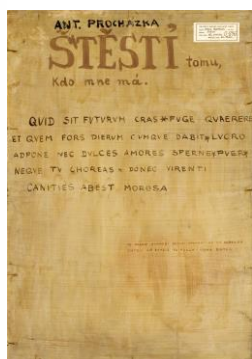 ANT. PROCHAZKA
ŠTĚSTÍ tomu,
Kdo mne má.
QUID SIT FVTVRVM CRAS * FVGE QVAERERE
ET QVEM FORS DIERVM CVMQVE DABIT * LVCRO
ADPONE NEC DVLCES AMORES SPERNE * PVER *
NEQVE TV CHOREAS * DONEC VIRENTI
CANITIES ABEST MOROSA